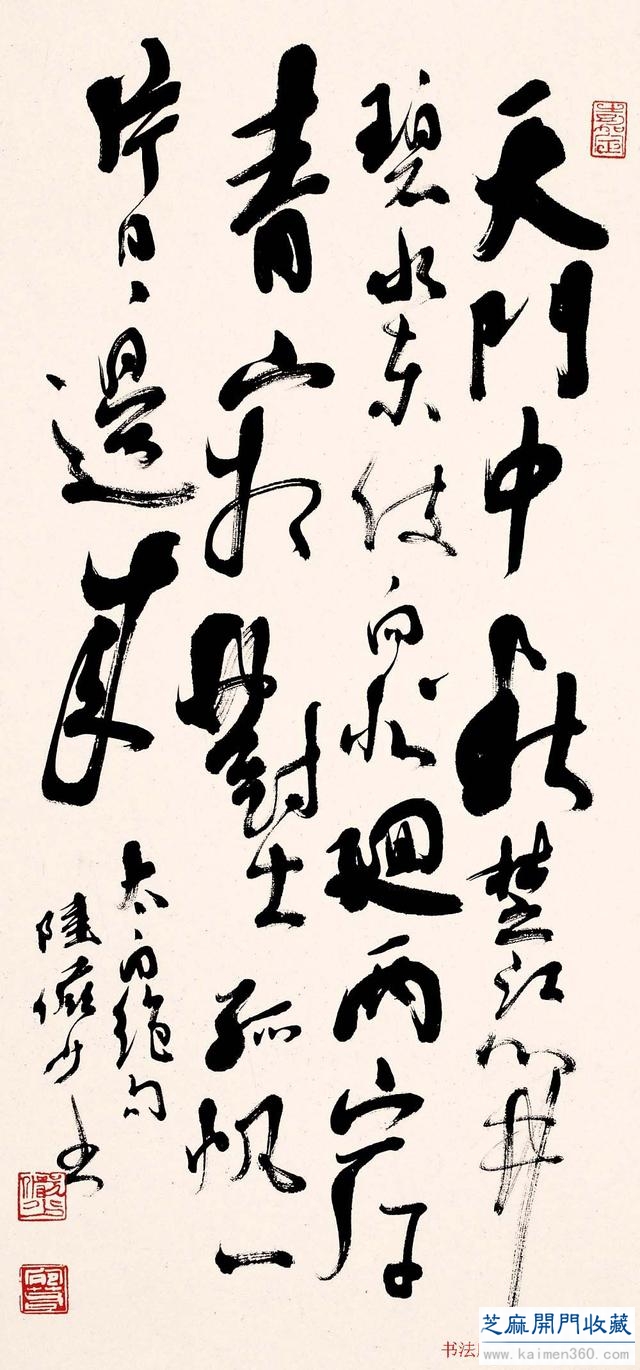 天門中斷楚江開
碧水東向北廻兩岸
青山相對出孤帆一
片日邊來
太白絕句
陸儼少書
嘉定
儼少
书法
芝麻開門收藏
www.kaimen360.com